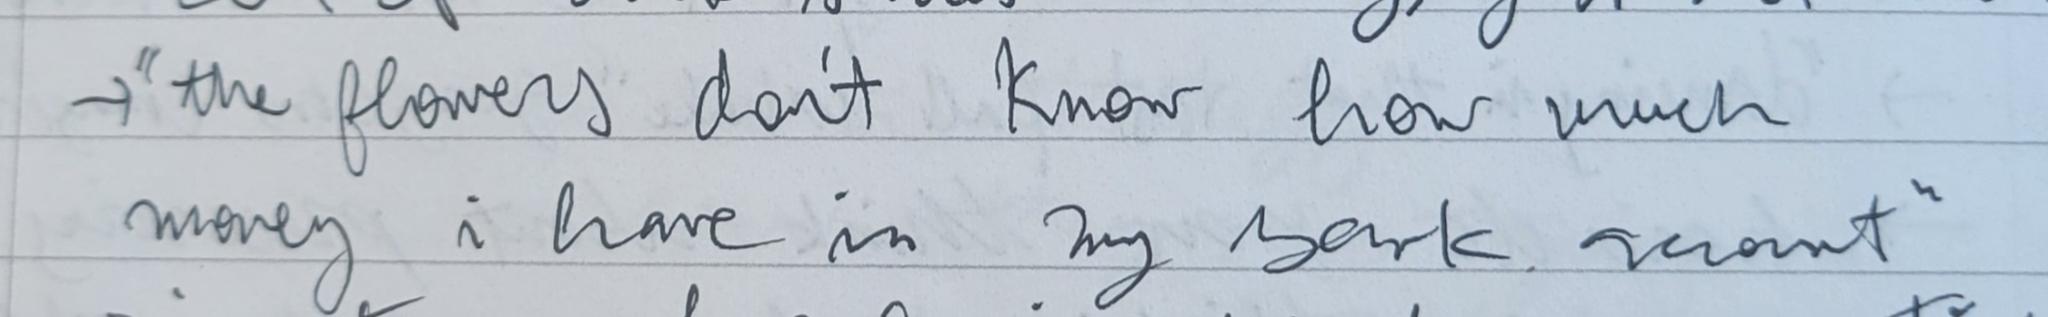 →"the flowers don't know how much
money i have in my bank account"